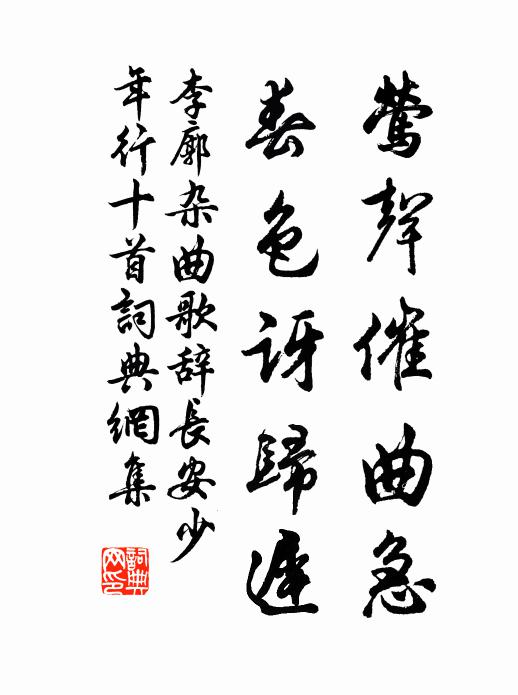 鶯聲催曲急
春色訝歸遲
李廓杂曲歌辞長安少
年行十首詞典網集
詞典
网印